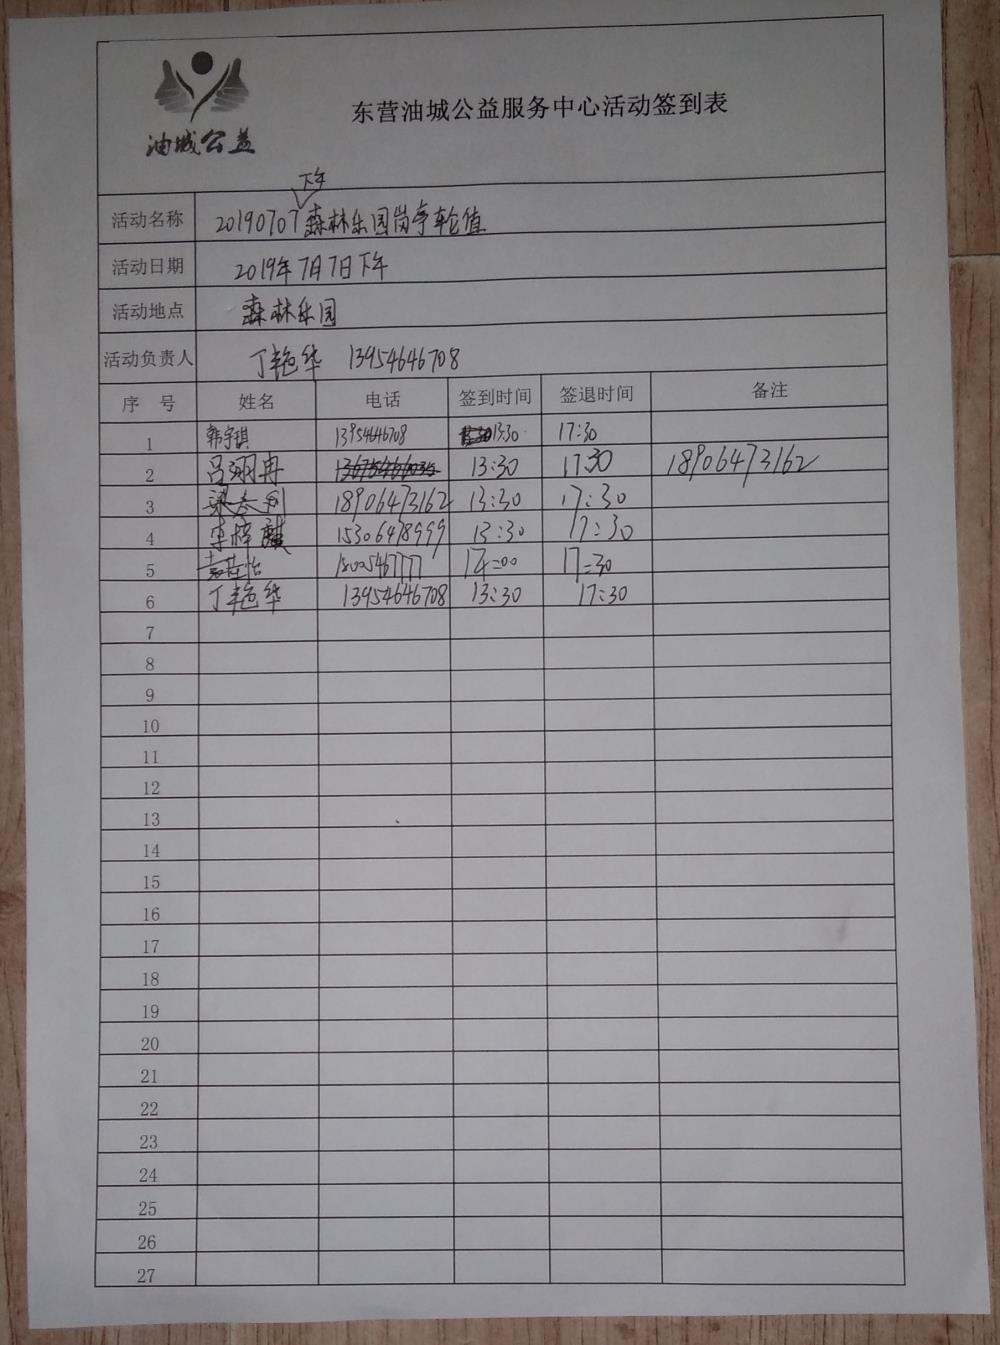 油城公益
东营油城公益服务中心活动签到表
下午
活动名称 20190707森林乐园岗亭轮值
活动日期 2019年7月7日下午
活动地点 森林乐园
活动负责人 丁艳华 13954646708
序 号 姓名 电话 签到时间 签退时间 备注
1 韩宇琪 13954646708 13:30 17:30
2 吕翊冉 13:30 17:30 18906473162
3 18906473162 13:30 17:30
4 李梓麒 15306478999 13:30 17:30
5 14:00 17:30
6 丁艳华 13954646708 13:30 17:30
7
8
9
10
11
12
13
14
15
16
17
18
19
20
21
22
23
24
25
26
27